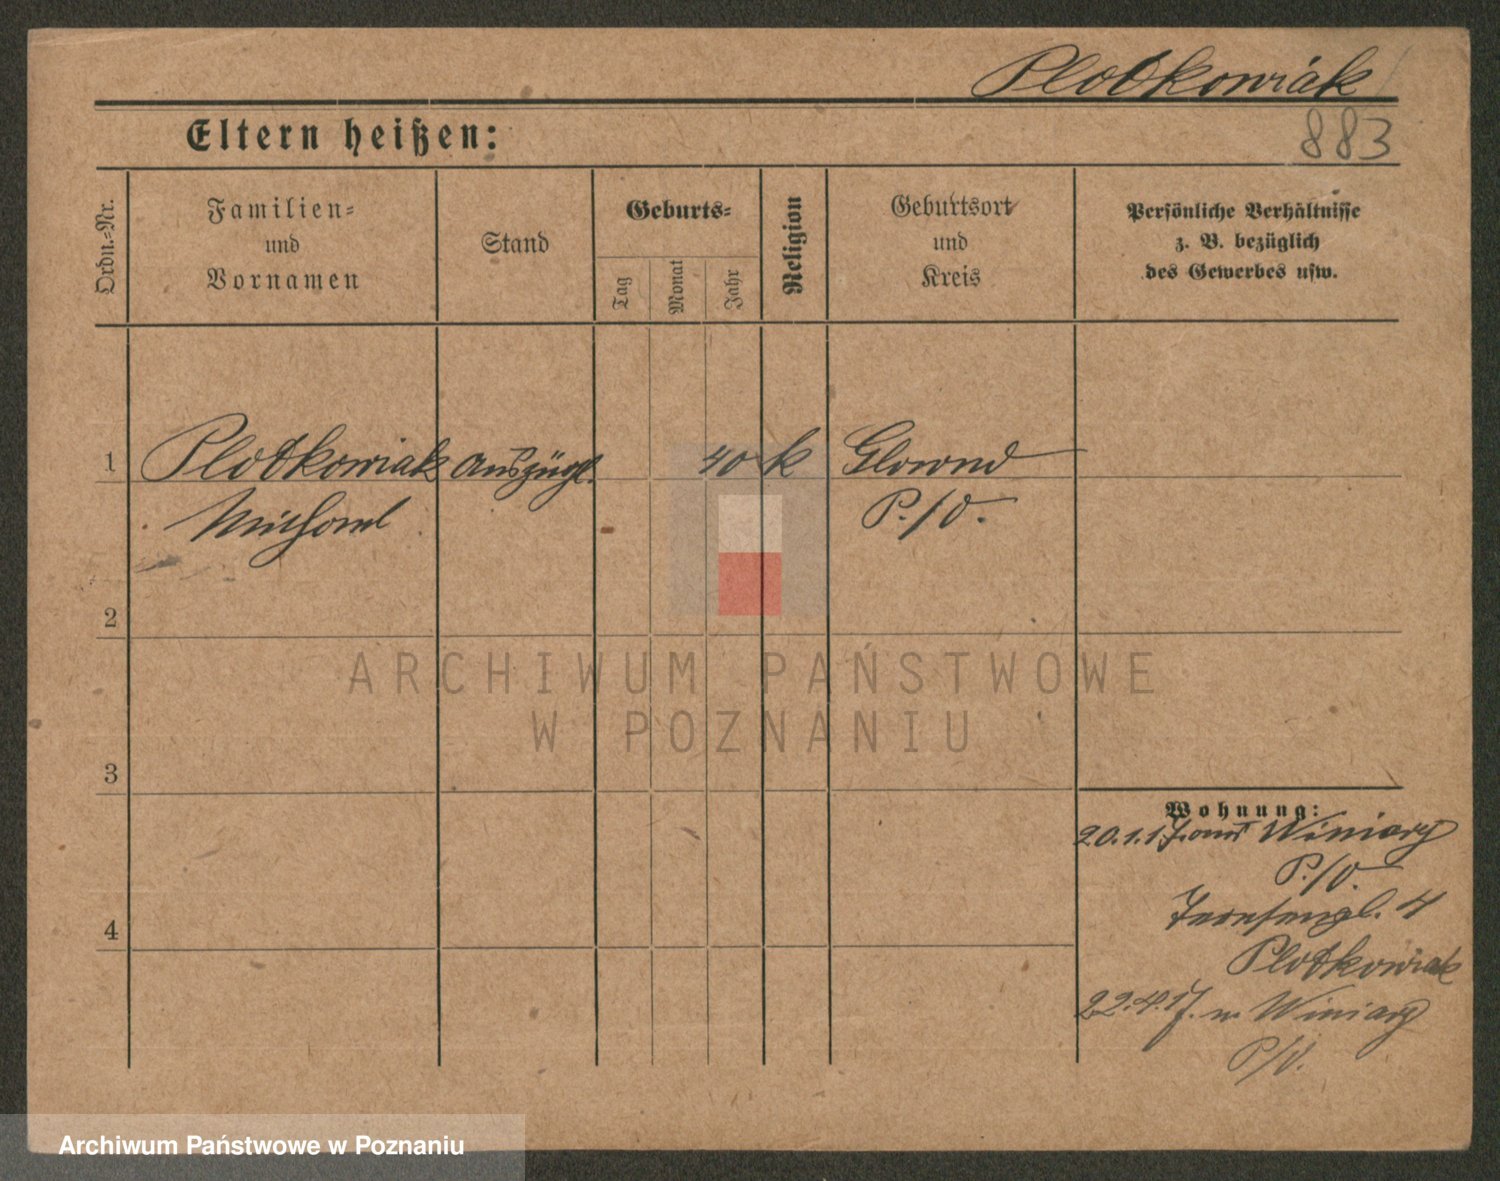 Plotkowiak
Eltern heißen:
883
Ordn.-Nr.
Familien-
und
Vornamen
Stand
Geburts-
Tag
Monat
Jahr
Religion
Geburtsort
und
Kreis
Persönliche Verhältnisse
z. B. bezüglich
des Gewerbes usw.
1
Plotkowiak Auszügl. 40 k Glowno
P./O.
2
3
Wohnung:
20.1.17. aus Winiary
P./O.
4
4
Plotkowiak
22.4.17. n. Winiary
P/O.
ARCHIWUM PAŃSTWOWE
W POZNANIU
Archiwum Państwowe w Poznaniu